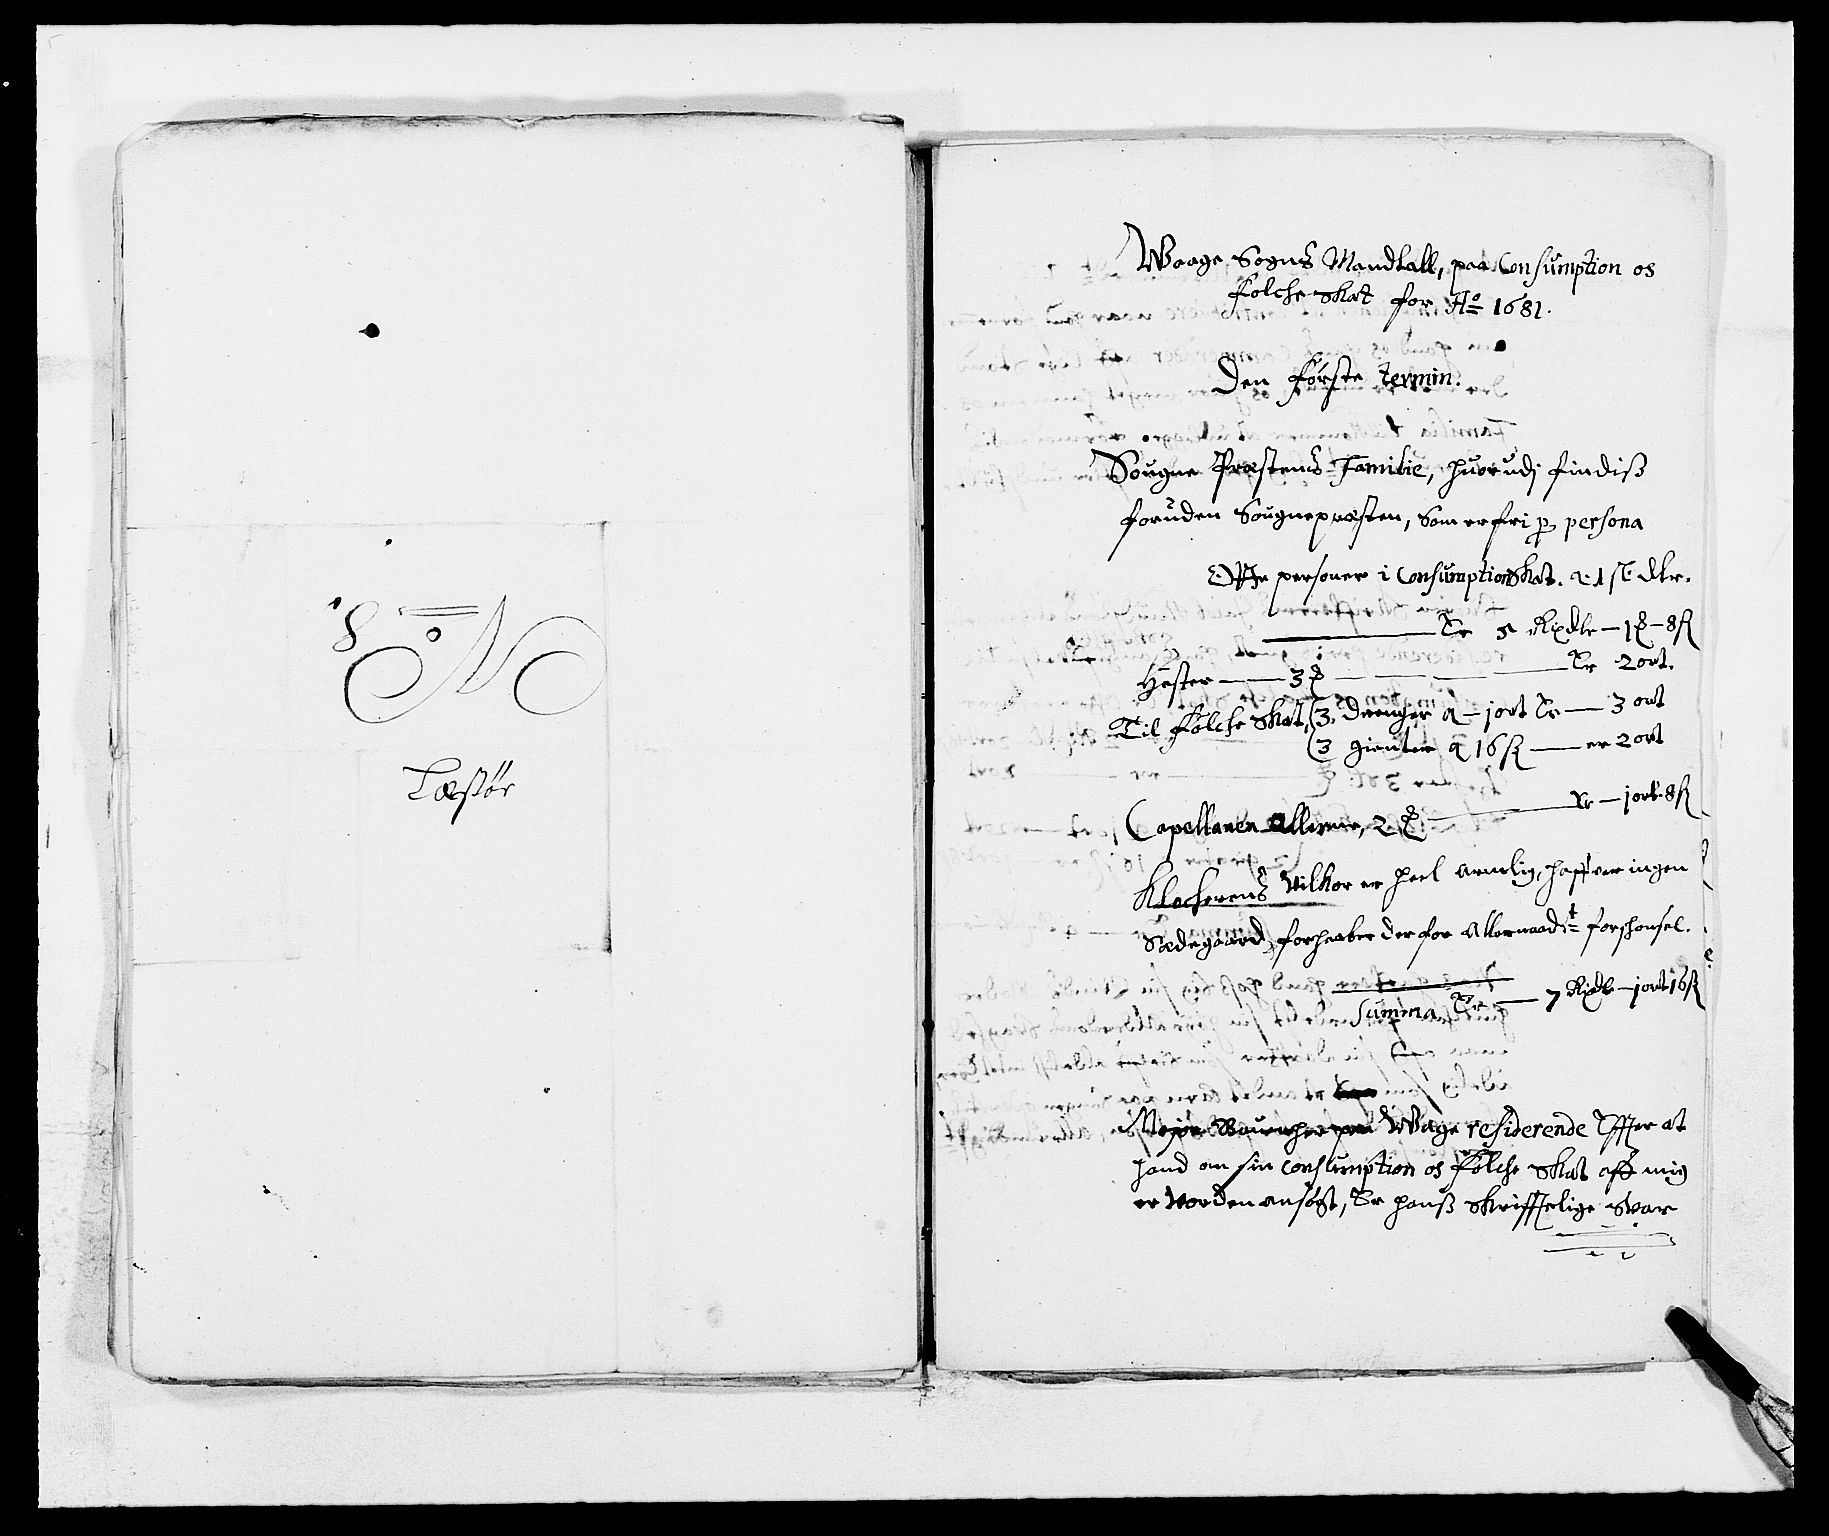 No 8
Læssøe
Waage Sogns Mandtall, paa Consumption og
folche Skat for Ao 1681.
Den første Termin.
Sougne Præstens Familie, huorudj findiß
foruden Sougnepræsten, som er fri p persona
Otte personer i Consumption Skat. a 1 st. dlr.
Er 5 Rixdlr — 1 — 8 ß
Hester — 3 — Er 2 ort.
Til folche Skat, 3 drenger a — j ort Er — 3 ort
3 gienter a 16 ß — er 2 ort
Capellanen allerne, 2 — Er — j ort. 8 ß
Klocherens vilkor er heel armelig, haffuer ingen
Sædegaard, forhaaber derfor allernaadt: forskonsel.
Summa Er — 7 Rixdlr — j ort 16 ß
Wage residerende Effter at
hand om sin Consumption og folche Skat aff mig
er vorden ansøgt, Er hanß Skrifftelige Svar